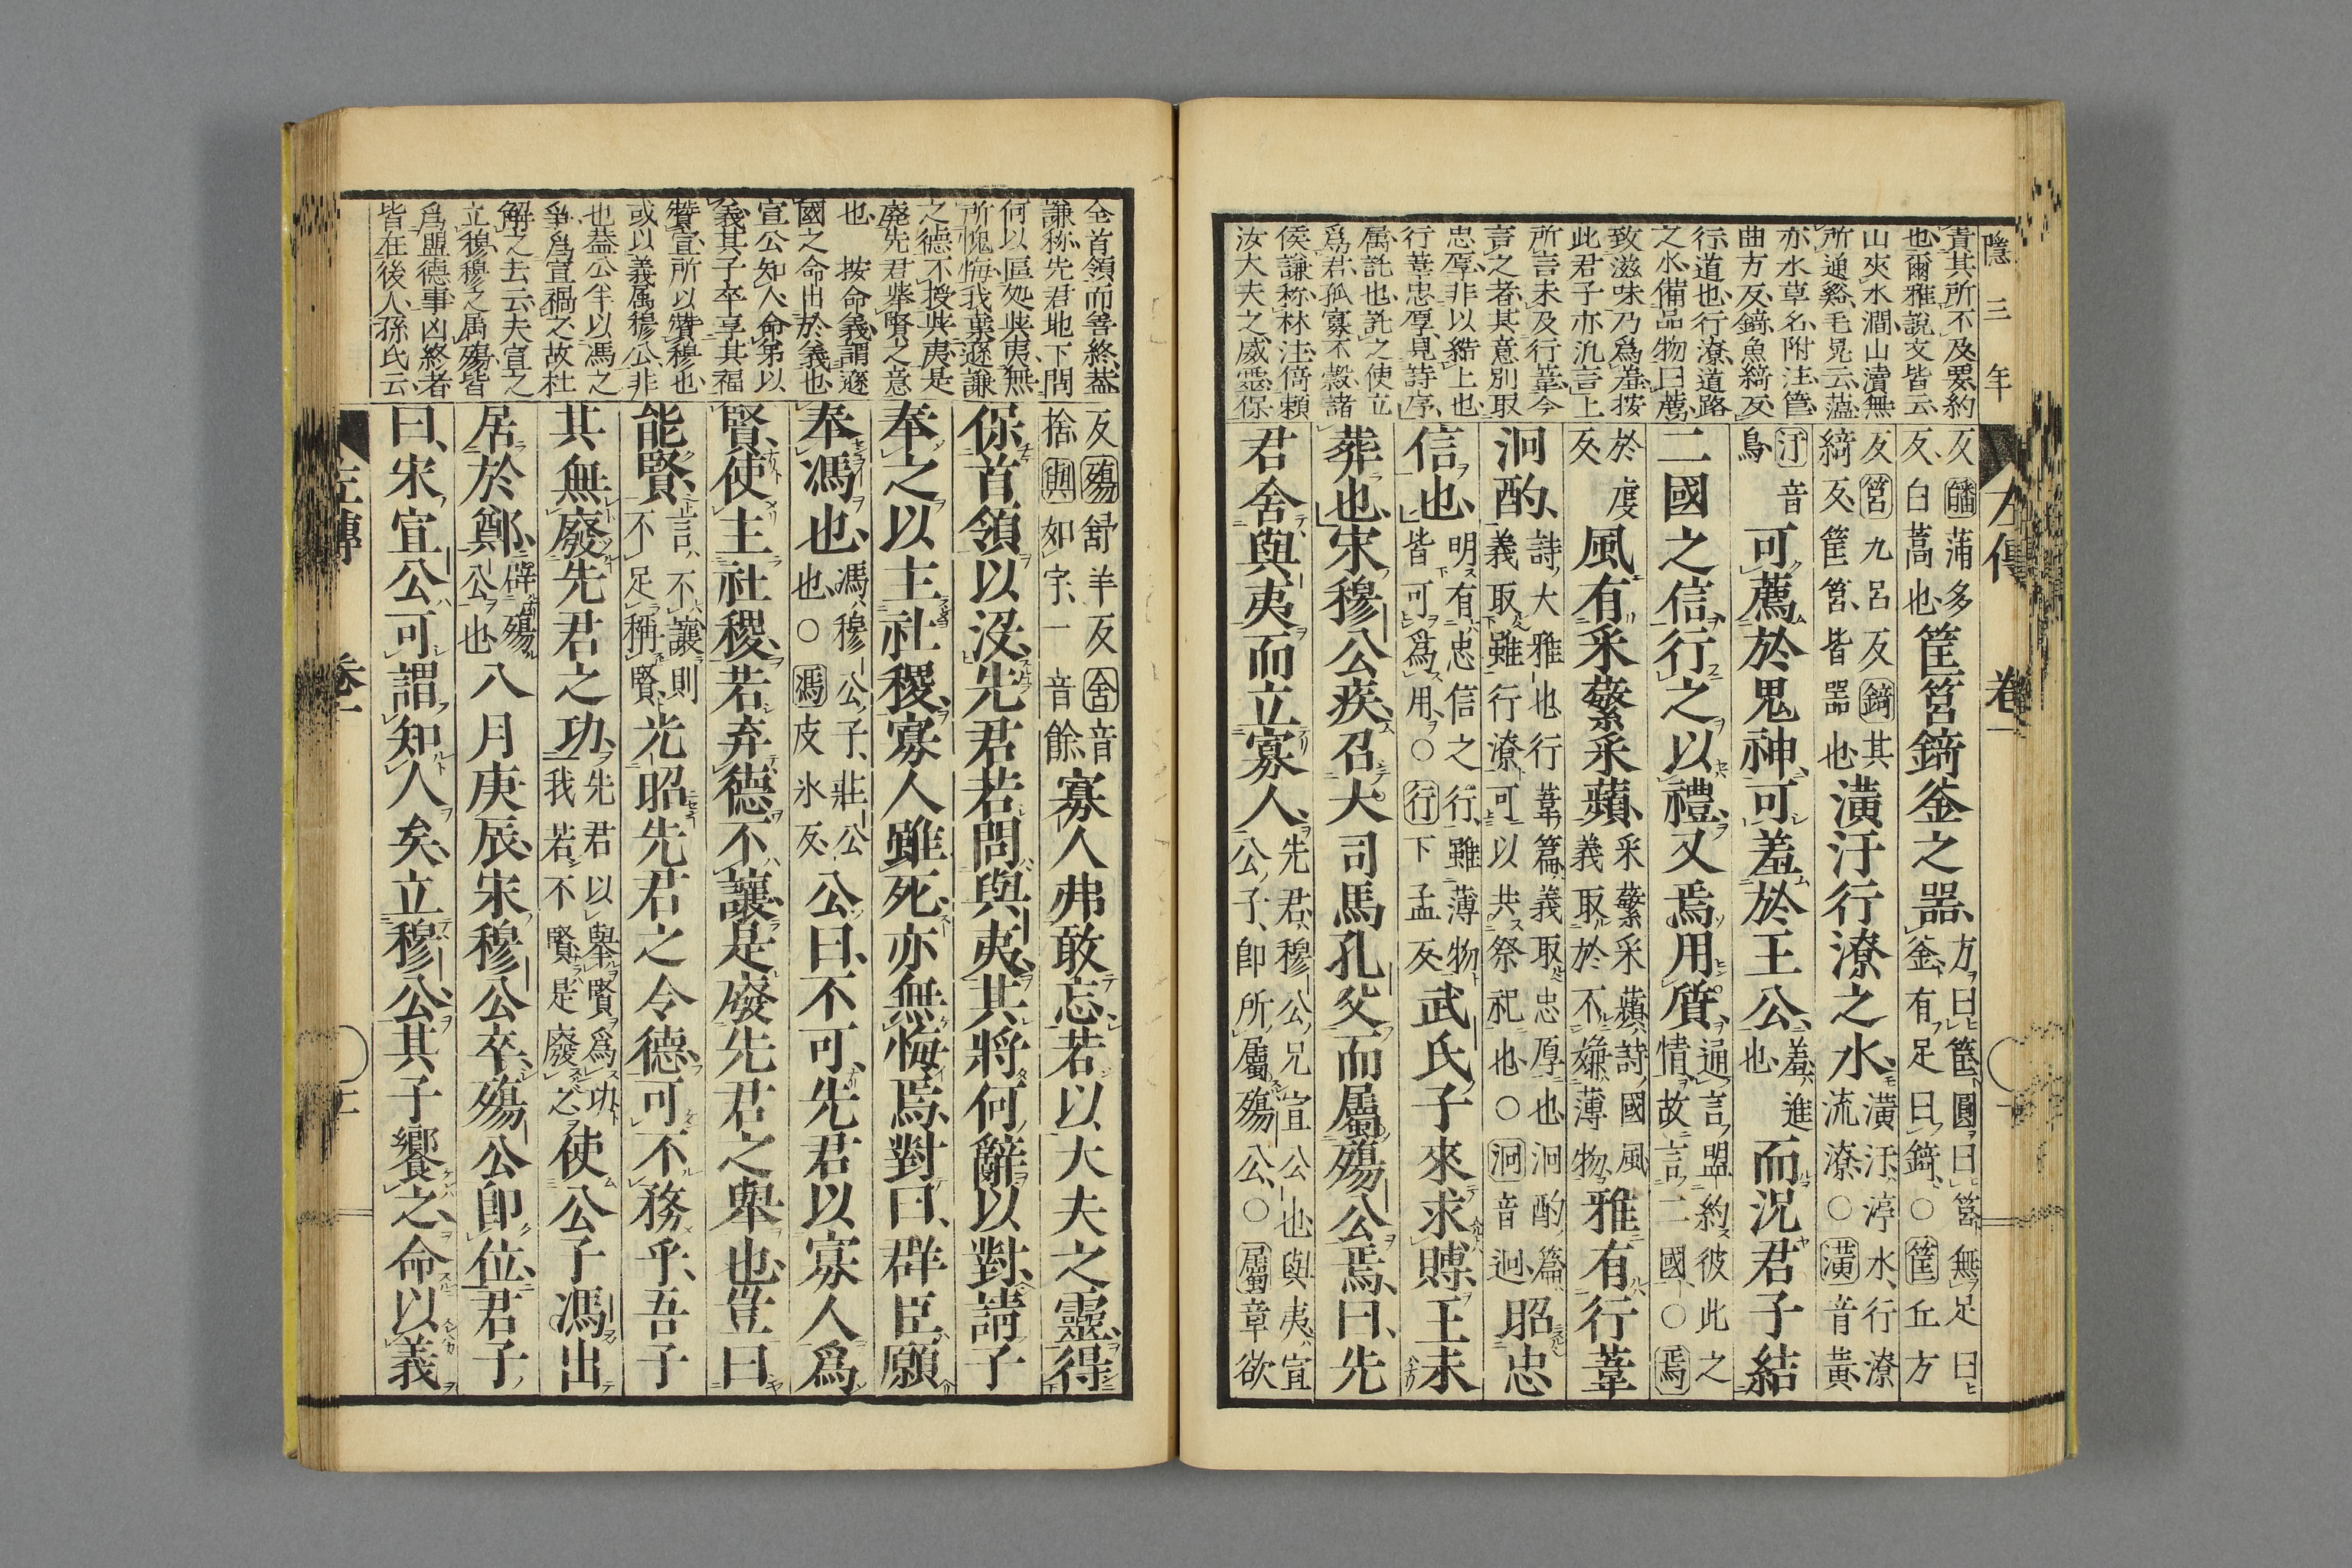 隱三年
左傳　卷一
責其所不及要約
也爾雅說文皆云
山夾水澗山瀆無
所通谿毛晃云薀
亦水草名附注筥
曲方反錡魚綺反
行道也行潦道路
之水備品物曰薦
致滋味乃爲羞按
此君子亦汎言上
所言未及行葦今
言之者其意別取
忠厚非以結上也
行葦忠厚見詩序
屬託也託之使立
爲君孤寡不穀諸
侯謙稱林注倚賴
汝大夫之威靈保
反皤蒲多反白蒿也筐筥錡釜之器方曰筐圓曰筥無足曰釜有足曰錡○筐丘方
反筥九呂反錡其綺反筐筥皆器也潢汙行潦之水潢汙渟水行潦流潦○潢音黃
汙音烏可薦於鬼神可羞於王公羞進也而況君子結
二國之信行之以禮又焉用質通言盟約彼此之情故言二國○焉
於虔反風有采蘩采蘋采蘩采蘋詩國風義取於不嫌薄物雅有行葦
泂酌詩大雅也行葦篇義取忠厚也泂酌篇義取雖行潦可以共祭祀也○泂音迥昭忠
信也明有忠信之行雖薄物皆可爲用○行下孟反武氏子來求賻王未
葬也宋穆公疾召大司馬孔父而屬殤公焉曰先
君舍與夷而立寡人先君穆公兄宣公也與夷宣公子即所屬殤公○屬章欲
全首領而善終葢
謙称先君地下問
何以區処與夷無
所愧悔我棄遜讓
之德不授與夷是
廢先君舉賢之意
也　按命義謂遜
國之命出於義也
宣公知人命弟以
義其子卒享其福
贊宣所以贊穆也
或以義属穆公非
也葢公羊以馮之
爭爲宣禍之故杜
解之去云夫宣之
立穆穆之属殤皆
爲盟德事凶終者
皆在後人孫氏云
反殤舒羊反舍音捨與如字一音餘寡人弗敢忘若以大夫之靈得
保首領以沒先君若問與夷其將何辭以對請子
奉之以主社稷寡人雖死亦無悔焉對曰群臣願
奉馮也馮穆公子莊公也○馮皮氷反公曰不可先君以寡人爲
賢使主社稷若弃德不讓是廢先君之舉也豈曰
能賢言不讓則不足稱賢光昭先君之令德可不務乎吾子
其無廢先君之功先君以舉賢爲功我若不賢是廢之使公子馮出
居於鄭辟殤公也八月庚辰宋穆公卒殤公即位君子
曰宋宣公可謂知人矣立穆公其子饗之命以義
左傳　卷一